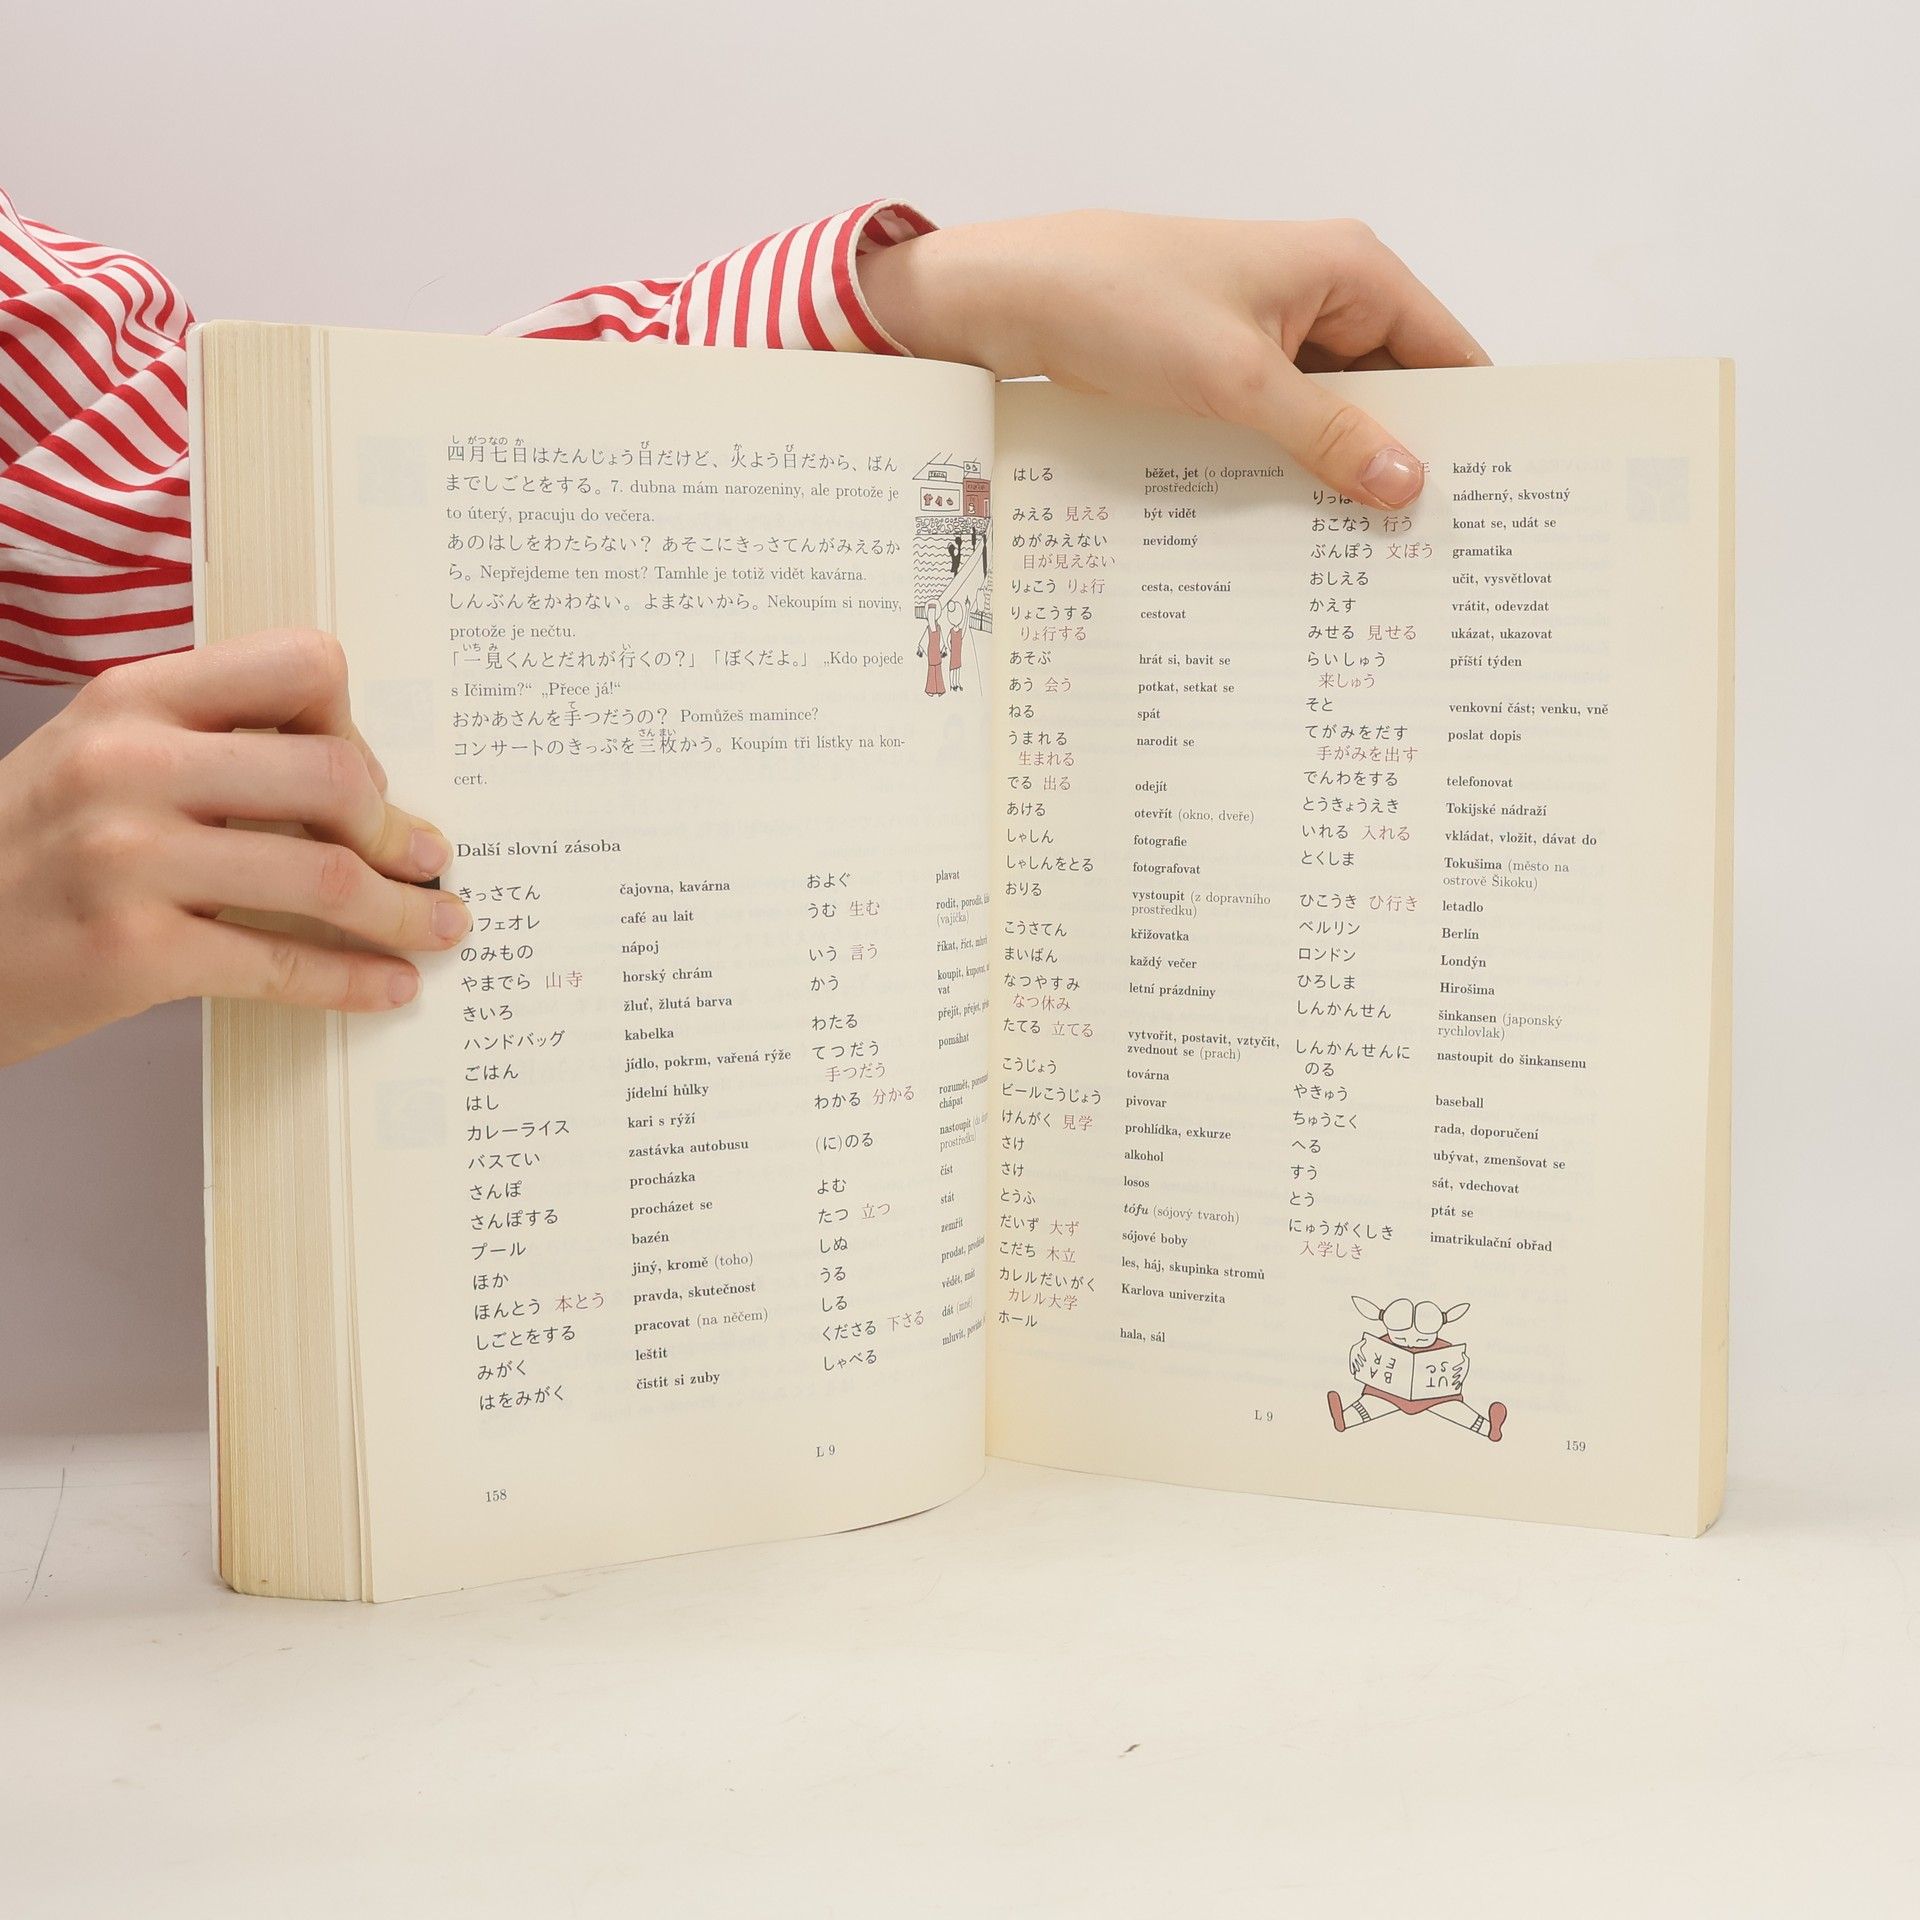 四月七日はたんじょう日だけど、火よう日だから、ばん
までしごとをする。7. dubna mám narozeniny, ale protože je
to úterý, pracuju do večera.
あのはしをわたらない？ あそこにきっさてんがみえるか
ら。Nepřejdeme ten most? Tamhle je totiž vidět kavárna.
しんぶんをかわない。よまないから。Nekoupím si noviny,
protože je nečtu.
「一見くんとだれが行くの？」「ぼくだよ。」 „Kdo pojede
s Ičimim?“ „Přece já!“
おかあさんを手つだうの？ Pomůžeš mamince?
コンサートのきっぷを三枚かう。Koupím tři lístky na kon-
cert.
Další slovní zásoba
きっさてん čajovna, kavárna
フェオレ café au lait
のみもの nápoj
やまでら 山寺 horský chrám
きいろ žluť, žlutá barva
ハンドバッグ kabelka
ごはん jídlo, pokrm, vařená rýže
はし jídelní hůlky
カレーライス kari s rýží
バスてい zastávka autobusu
さんぽ procházka
さんぽする procházet se
プール bazén
ほか jiný, kromě (toho)
ほんとう 本とう pravda, skutečnost
しごとをする pracovat (na něčem)
みがく leštit
はをみがく čistit si zuby
およぐ plavat
うむ 生む rodit, porodit,
(vajíčka)
いう 言う říkat, říct,
かう koupit, kupovat,
vat
わたる přejít, přejet,
てつだう pomáhat
手つだう
わかる 分かる rozumět,
chápat
(に)のる nastoupit
prostředku)
よむ číst
たつ 立つ stát
しぬ zemřít
うる prodat,
しる vědět,
くださる 下さる dát
しゃべる mluvit,
L 9
158
はしる běžet, jet (o dopravních
prostředcích)
みえる 見える být vidět
めがみえない nevidomý
目が見えない
りょこう りょ行 cesta, cestování
りょこうする cestovat
りょ行する
あそぶ hrát si, bavit se
あう 会う potkat, setkat se
ねる spát
うまれる narodit se
生まれる
でる 出る odejít
あける otevřít (okno, dveře)
しゃしん fotografie
しゃしんをとる fotografovat
おりる vystoupit (z dopravního
prostředku)
こうさてん křižovatka
まいばん každý večer
なつやすみ letní prázdniny
なつ休み
たてる 立てる vytvořit, postavit, vztyčit,
zvednout se (prach)
こうじょう továrna
ビールこうじょう pivovar
けんがく 見学 prohlídka, exkurze
さけ alkohol
さけ losos
とうふ tófu (sójový tvaroh)
だいず 大ず sójové boby
こだち 木立 les, háj, skupinka stromů
カレルだいがく Karlova univerzita
カレル大学
ホール hala, sál
年 každý rok
りっぱ nádherný, skvostný
おこなう 行う konat se, udát se
ぶんぽう 文ぽう gramatika
おしえる učit, vysvětlovat
かえす vrátit, odevzdat
みせる 見せる ukázat, ukazovat
らいしゅう příští týden
来しゅう
そと venkovní část; venku, vně
てがみをだす poslat dopis
手がみを出す
でんわをする telefonovat
とうきょうえき Tokijské nádraží
いれる 入れる vkládat, vložit, dávat do
とくしま Tokušima (město na
ostrově Šikoku)
ひこうき ひ行き letadlo
ベルリン Berlín
ロンドン Londýn
ひろしま Hirošima
しんかんせん šinkansen (japonský
rychlovlak)
しんかんせんに nastoupit do šinkansenu
のる
やきゅう baseball
ちゅうこく rada, doporučení
へる ubývat, zmenšovat se
すう sát, vdechovat
とう ptát se
にゅうがくしき imatrikulační obřad
入学しき
L 9
159